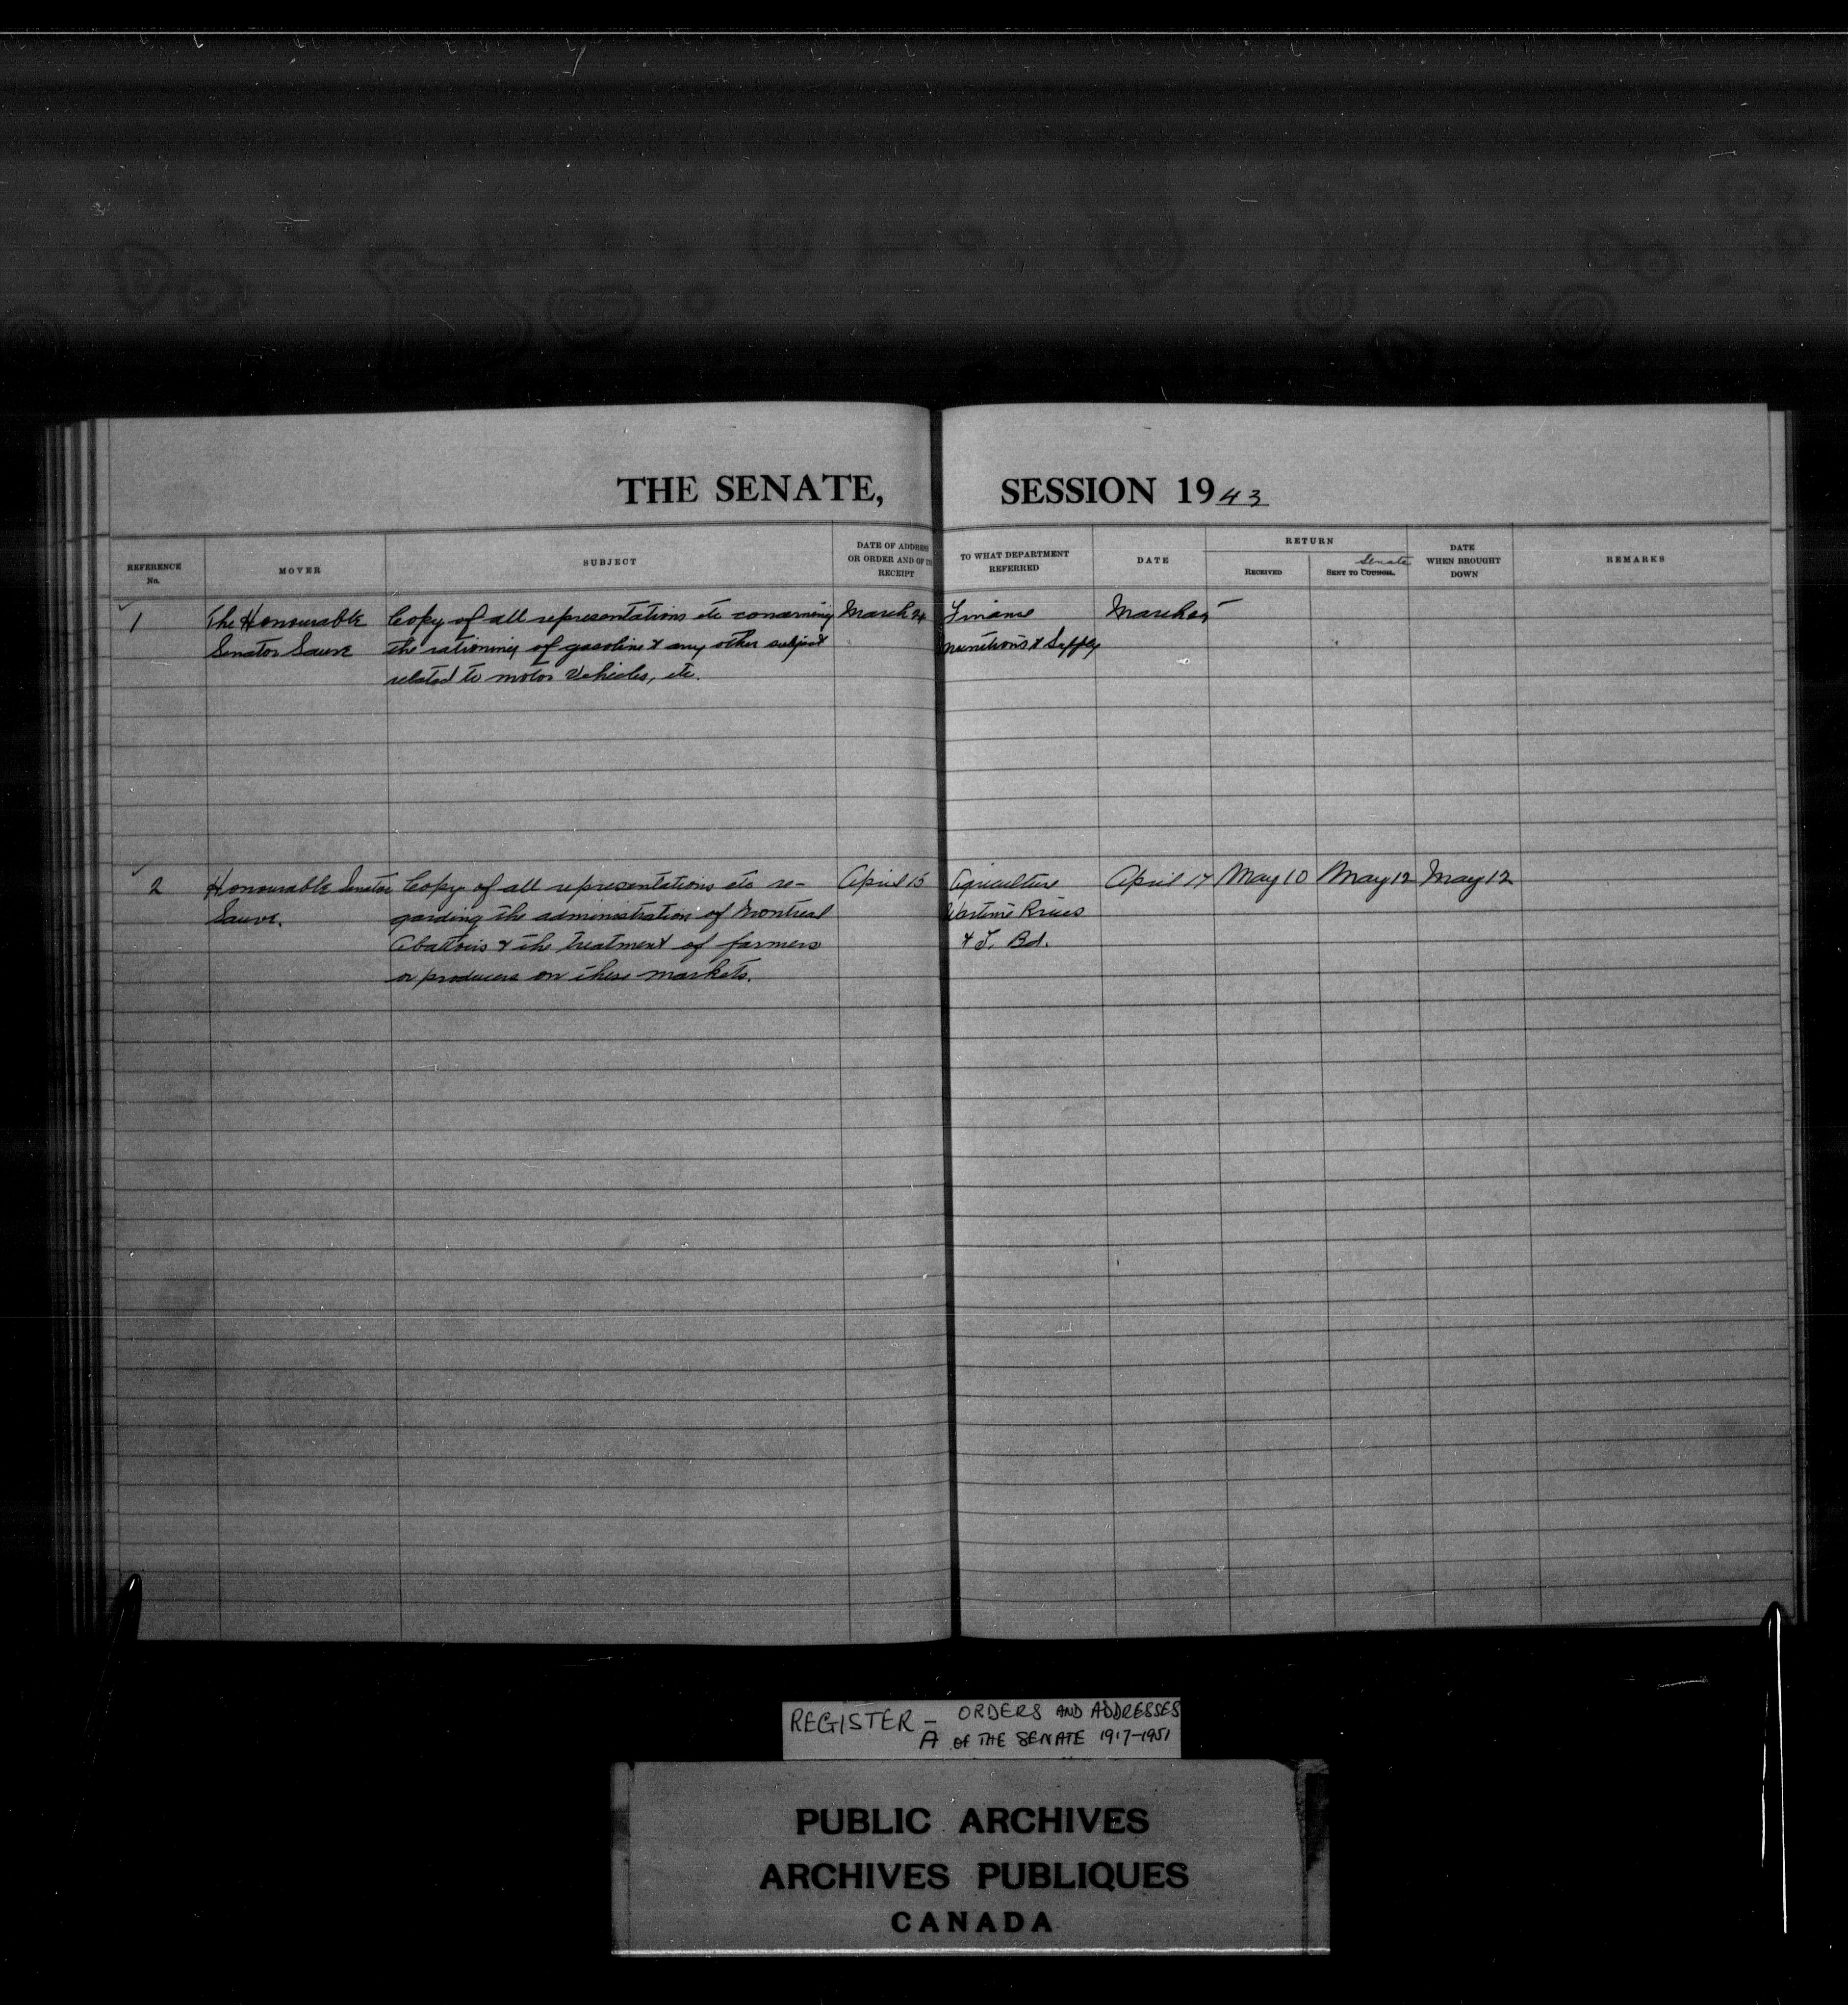 THE SENATE, SESSION 1943
REFERENCE No.
MOVER
SUBJECT
DATE OF ADDRESS OR ORDER AND OF ITS RECEIPT
TO WHAT DEPARTMENT REFERRED
DATE
RETURN
RECEIVED
SENT TO COUNCIL. Senate
DATE WHEN BROUGHT DOWN
REMARKS
1 The Honourable Copy of all representations etc concerning March 24 Finance March
Senator Sauve the rationing of gasoline & any other subject Munitions & Supply
related to motor vehicles, etc.
2 Honourable Senator Copy of all representations etc re- April 15 Agriculture April 17 May 10 May 12 May 12
Sauve. garding the administration of Montreal Wartime Prices
Abattoirs & the treatment of farmers & T. Bd.
or producers on these markets.
REGISTER - ORDERS AND ADDRESSES
A OF THE SENATE 1917-1951
PUBLIC ARCHIVES
ARCHIVES PUBLIQUES
CANADA